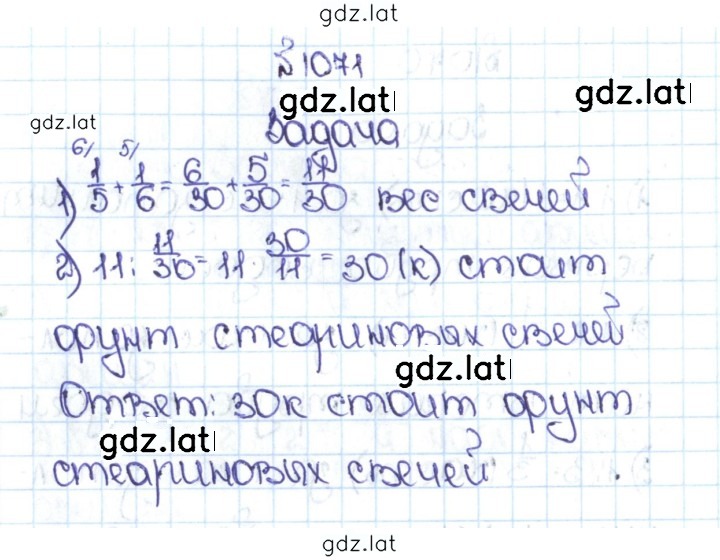 gdz.lat
№ 1071
gdz.lat gdz.lat
gdz.lat
Задача
6/ 5/
1) 1/5 + 1/6 = 6/30 + 5/30 = 11/30 вес свечей
2) 11 : 11/30 = 11 · 30/11 = 30 (к) стоит
фунт стеариновых свечей
gdz.lat
Ответ: 30к стоит фунт
gdz.lat
стеариновых свечей.
gdz.lat